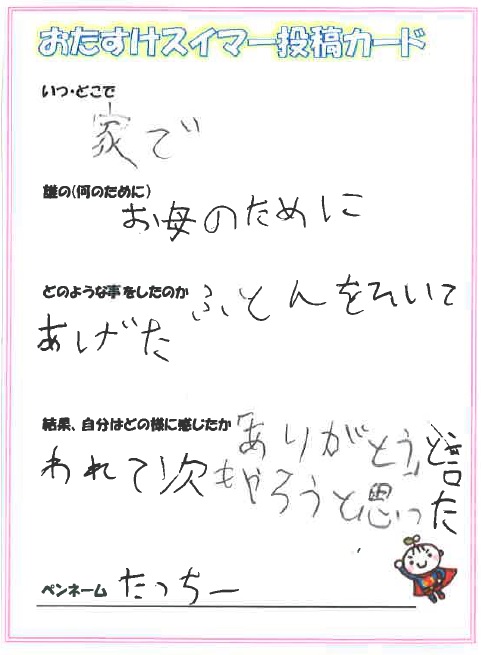 おたすけスイマー投稿カード
いつ・どこで
家で
誰の(何のために)
お母のために
どのような事をしたのか
ふとんをひいて
あげた
結果、自分はどの様に感じたか
「ありがとう」と言
われて次もやろうと思った
ペンネーム たっちー